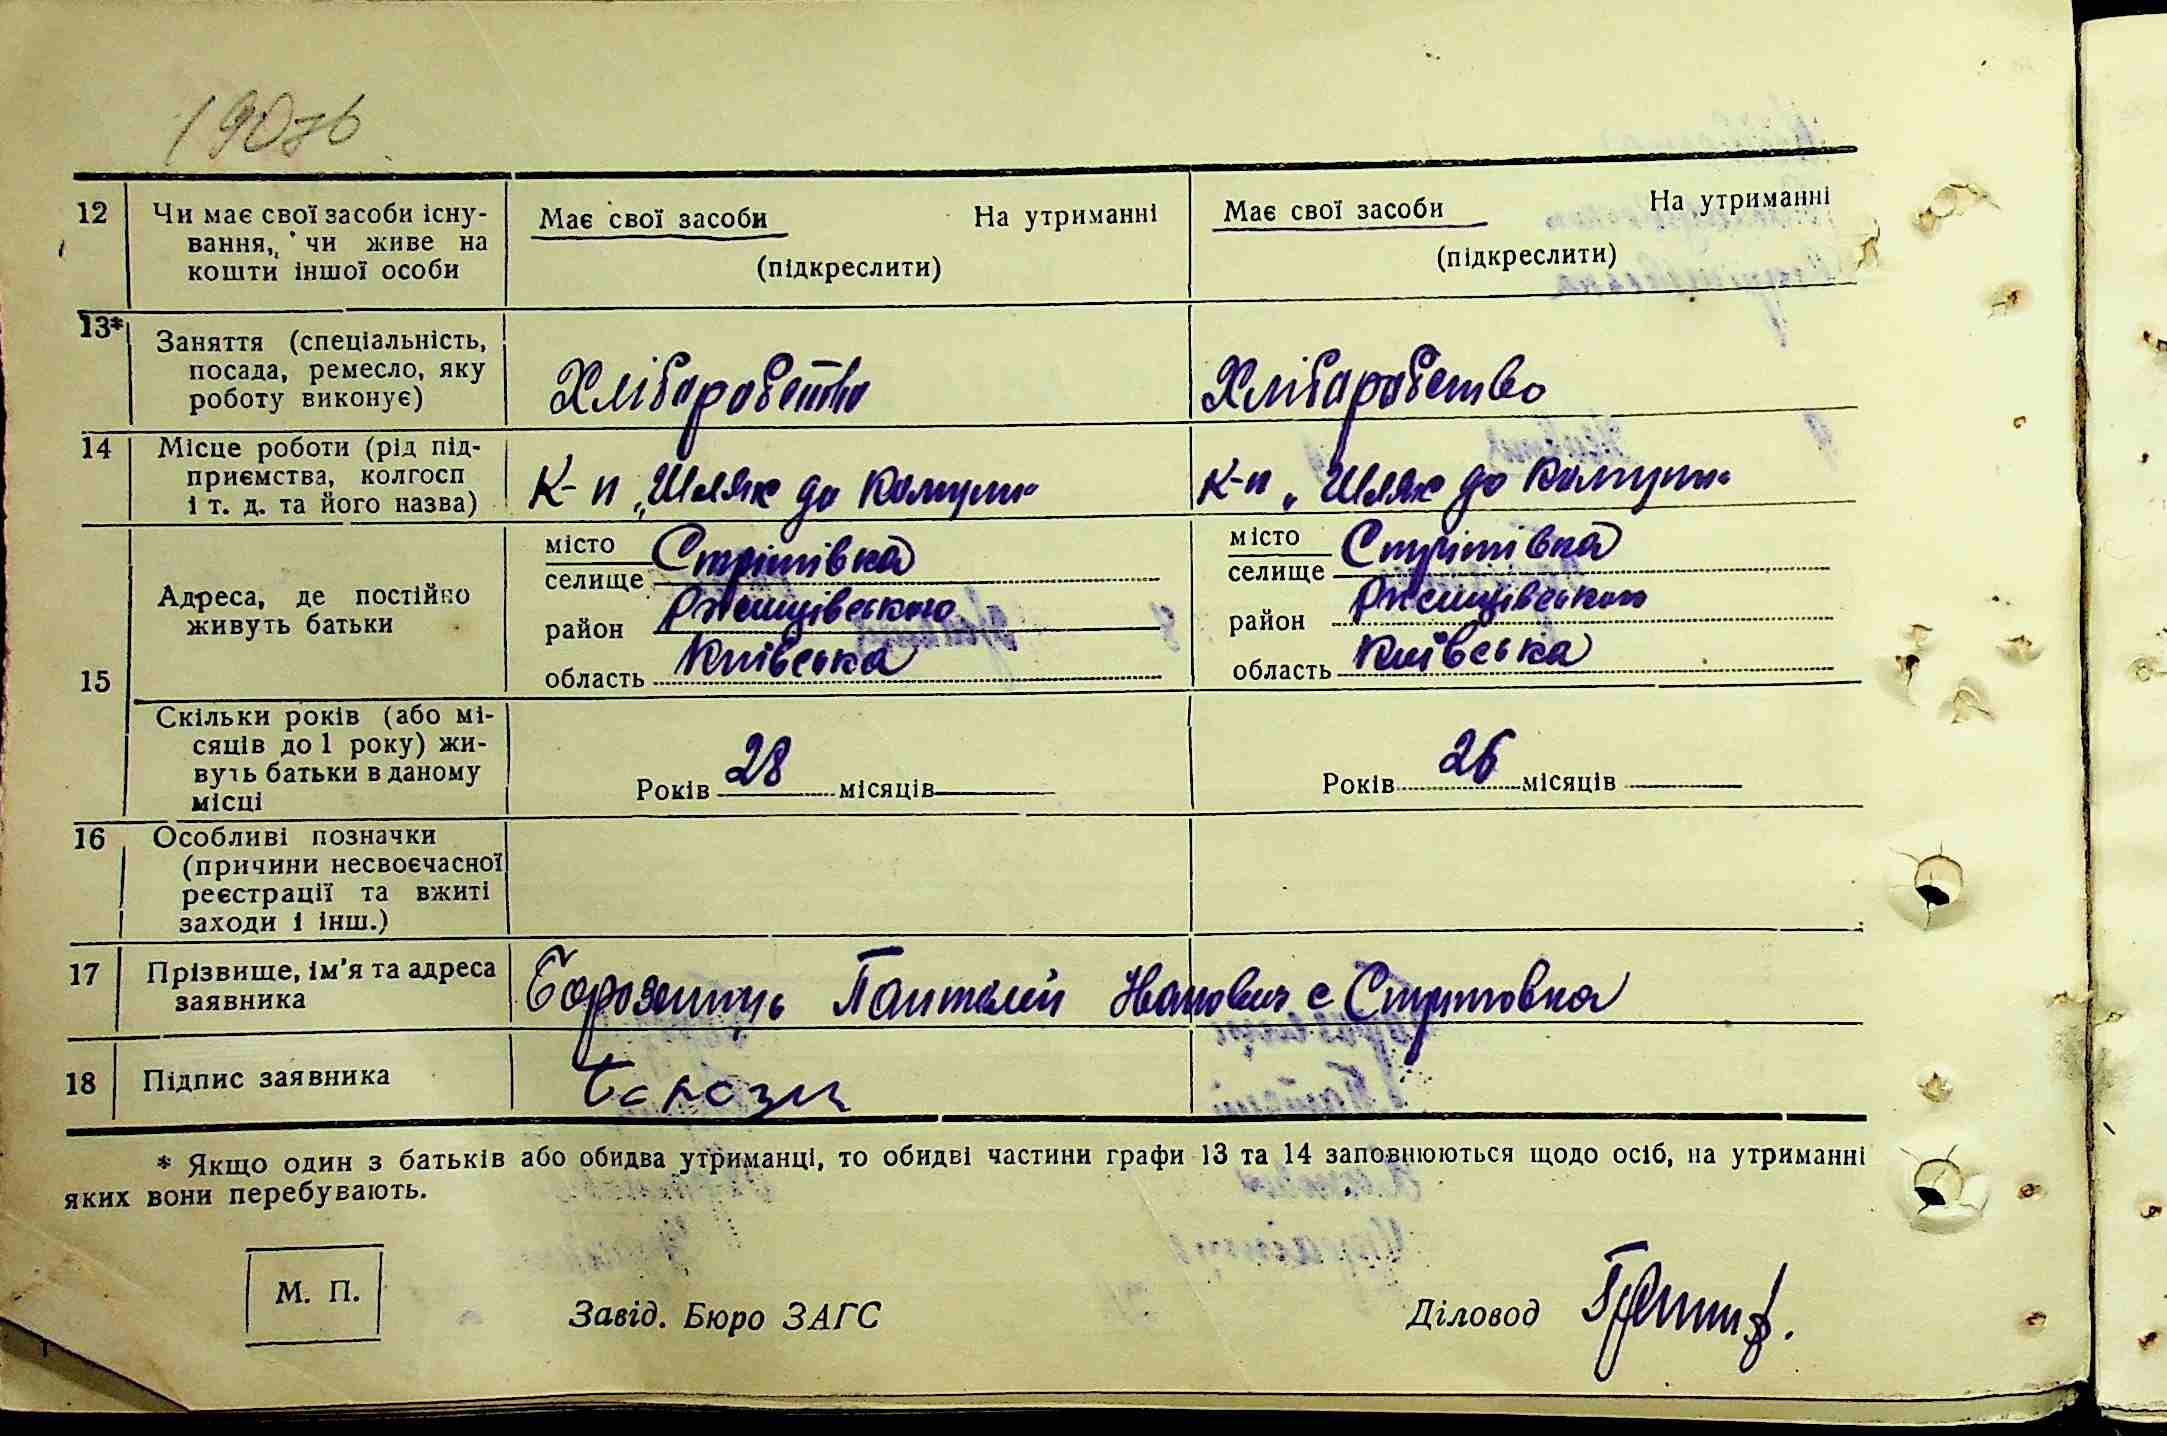 190зв
12 Чи має свої засоби існу- Має свої засоби На утриманні Має свої засоби На утриманні
вання, чи живе на
кошти іншої особи (підкреслити) (підкреслити)
13* Заняття (спеціальність,
посада, ремесло, яку Хліборобство Хліборобство
роботу виконує)
14 Місце роботи (рід під-
приємства, колгосп К-п „Шлях до Комуни“ К-п „Шлях до Комуни“
і т. д. та його назва)
місто Стритівка місто Стритівка
селище селище
Адреса, де постійно район Ржищівського район Ржищівського
живуть батьки
15 область Київська область Київська
Скільки років (або мі-
сяців до 1 року) жи-
вуть батьки в даному Років 28 місяців Років 26 місяців
місці
16 Особливі позначки
(причини несвоєчасної
реєстрації та вжиті
заходи і інш.)
17 Прізвище, ім'я та адреса Панталей Иванович с Стритовка
заявника
18 Підпис заявника
* Якщо один з батьків або обидва утриманці, то обидві частини графи 13 та 14 заповнюються щодо осіб, на утриманні
яких вони перебувають.
М. П.
Завід. Бюро ЗАГС Діловод